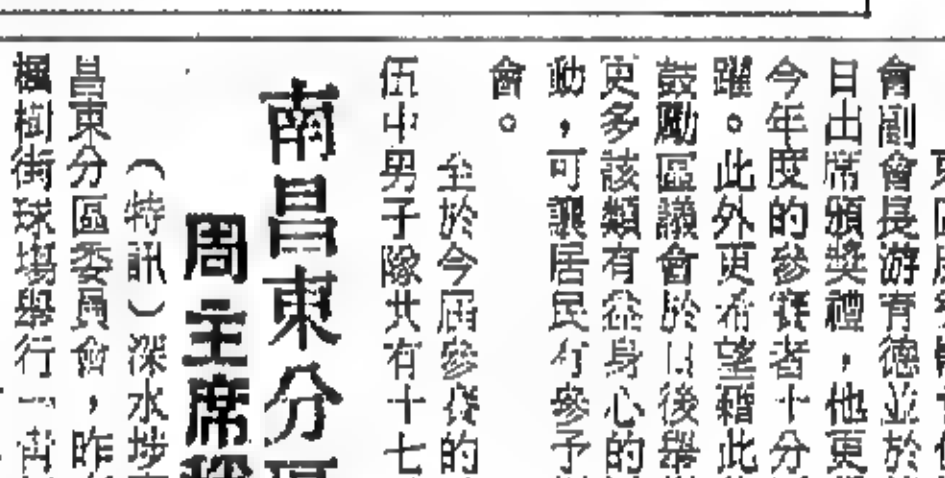 會副會長游有德並於
日出席頒獎禮，他更
今年度的參賽者十分
躍。此外更希望藉此
鼓勵區議會於以後舉
更多該類有益身心的
動，可讓居民有參予
會。
至於今屆參賽的
伍中男子隊共有十七
南昌東分區
周主席
（特訊）深水埗
昌東分區委員會，昨
楓樹街球場舉行一